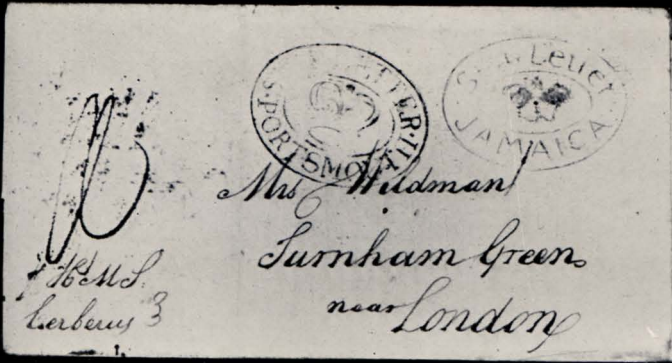 SHIP LETTER
PORTSMOUTH
Ship Letter
JAMAICA
Mrs Wildman
Turnham Green
near London
H M S
Cerberus